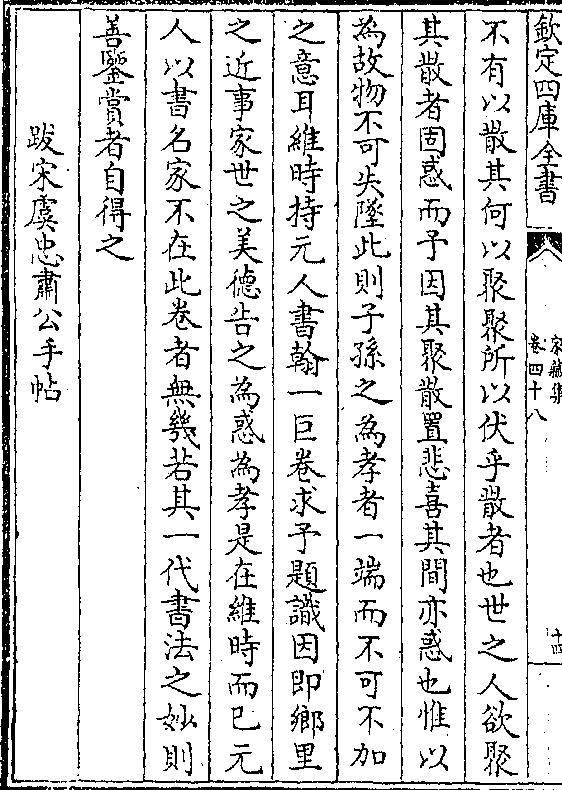 欽定四庫全書
家藏集
卷四十八
十四
不有以散其何以聚聚所以伏乎散者也世之人欲聚
其散者固惑而予因其聚散置悲喜其間亦惑也惟以
為故物不可失墜此則子孫之為孝者一端而不可不加
之意耳維時持元人書翰一巨卷求予題識因即鄉里
之近事家世之美德告之為惑為孝是在維時而已元
人以書名家不在此卷者無幾若其一代書法之妙則
善鑒賞者自得之
跋宋虞忠肅公手帖